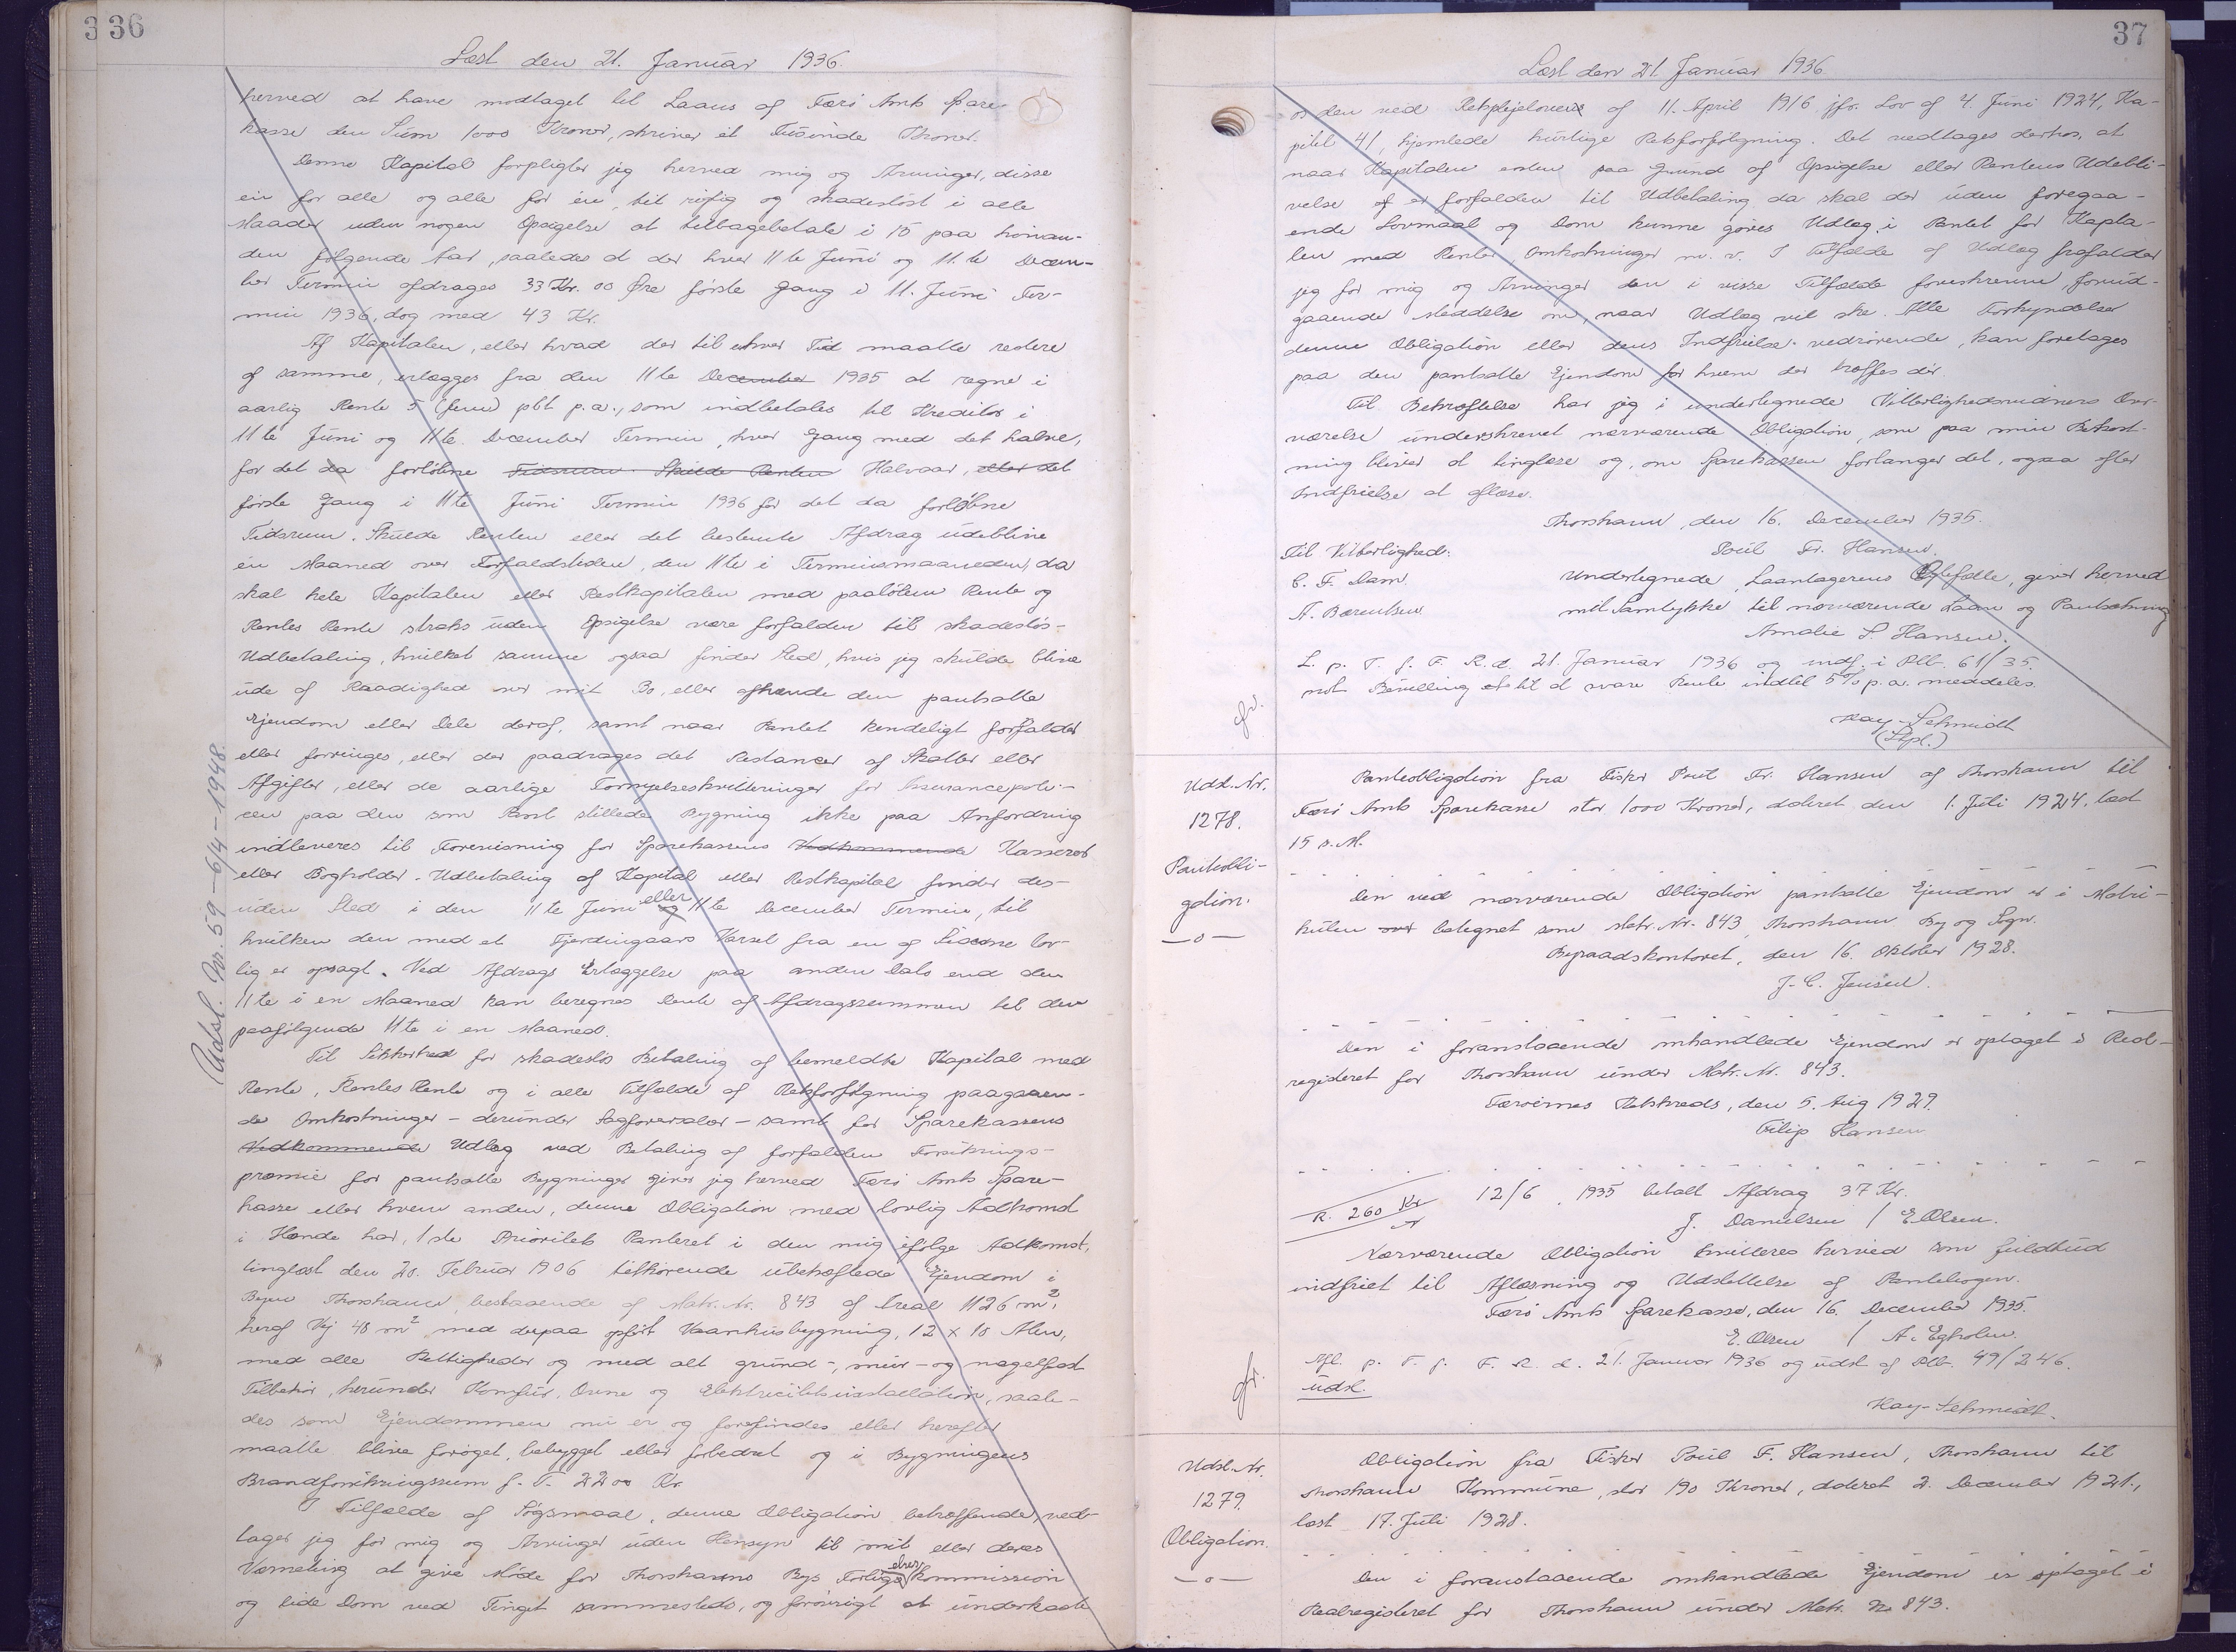 336
Læst den 21. Januar 1936.
herved at have modtaget til Laans af Færø Amts Spare-
kasse den Sum 1000 Kroner, skriver ét Tusinde Kroner.
Denne Kapital forpligter jeg herved mig og Arvinger, disse
én for alle og alle for én, til rigtig og skadesløst i alle
Maader uden nogen Opsigelse at tilbagebetale i 15 paa hinan-
den følgende Aar, saaledes at der hver 11te Juni og 11.te Decem-
ber Termin afdrages 33 Kr. 00 Øre første Gang i 11. Juni Ter-
min 1936, dog med 43 Kr.
Af Kapitalen, eller hvad der til enhver Tid maatte restere
af samme, erlægges fra den 11te December 1935 at regne i
aarlig Rente 5 (fem) pCt. p.a., som indbetales til Kreditor i
11te Juni og 11te December Termin, hver Gang med det halve,
for det da forløbne Tidsrum. Skulde Renten Halvaar, eller det
første Gang i 11te Juni Termin 1936 for det da forløbne
Tidsrum. Skulde Renten eller det bestemte Afdrag udeblive
én Maaned over Forfaldstiden, den 11te i Terminsmaaneden, da
skal hele Kapitalen eller Restkapitalen med paaløben Rente og
Rentes Rente straks uden Opsigelse være forfalden til skadesløs
Udbetaling, hvilket samme ogsaa finder Sted, hvis jeg skulde blive
ude af Raadighed over mit Bo, eller afhænde den pantsatte
Ejendom eller Dele deraf, samt naar Pantet kendeligt forfalder
eller forringes, eller der paadrages det Restancer af Skatter eller
Afgifter, eller de aarlige Fornyelseskvitteringer for Assurancepoli-
cen paa den som Pant stillede Bygning ikke paa Anfordring
indleveres til Forevisning for Sparekassens Vedkommende Kasserer
eller Bogholder. Udbetaling af Kapital eller Restkapital finder des-
uden Sted i den 11te Juni og eller 11te December Termin, til
hvilken den med et Fjerdingaars Varsel fra en af Siderne lov-
lig er opsagt. Ved Afdrags Erlæggelse paa anden Dato end den
11te i en Maaned kan beregnes Rente af Afdragssummen til den
paafølgende 11te i en Maaned.
Til Sikkerhed for skadesløs Betaling af bemeldte Kapital med
Rente, Rentes Rente og i alle Tilfælde af Retsforfølgning paagaaen-
de Omkostninger - derunder Sagførersalær - samt for Sparekassens
Vedkommende Udlæg ved Betaling af forfalden Forsikrings-
præmie for pantsatte Bygninger giver jeg herved Færø Amts Spare-
kasse eller hvem anden, denne Obligation med lovlig Adkomst
i Hænde har, 1ste Prioritets Panteret i den mig ifølge Adkomst,
tinglæst den 20. Februar 1906 tilhørende ubehæftede Ejendom i
Byen Thorshavn, bestaaende af Matr. Nr. 843 af Areal 1126 m²,
heraf Vej 48 m² med derpaa opført Vaanhusbygning, 12 x 10 Alen,
med alle Rettigheder og med alt grund-, mur- og nagelfast
Tilbehør, herunder Komfur, Ovne og Elektricitetsinstallation, saale-
des som Ejendommen nu er og forefindes eller herefter
maatte blive forøget, bebygget eller forbedret og i Bygningens
Brandforsikringssum f. T. 2200 Kr.
I Tilfælde af Søgsmaal, denne Obligation betræffende, ved-
tager jeg for mig og Arvinger uden Hensyn til mit eller deres
Værneting at give Møde for Thorshavns Bys Forligs kommission
og lide Dom ved Tinget sammesteds, og forøvrigt at underkaste
Udsl. Nr. 59 - 6/4 - 1948.
37
Læst den 21. Januar 1936
os den ved Retsplejeloven af 11. April 1916 jfr. Lov af 4. Juni 1924, Ka-
pitel 41, hjemlede hurtige Retsforfølgning. Det vedtages derhos, at
naar Kapitalen enten paa Grund af Opsigelse eller Rentens Udebli-
velse ef er forfalden til Udbetaling da skal der uden foregaa-
ende Lovmaal og Dom kunne gøres Udlæg i Pantet for Kapita-
len med Renter, Omkostninger m. v. I Tilfælde af Udlæg frafalder
jeg for mig og Arvinger den i visse Tilfælde foreskrevne forud-
gaaende Meddelse om, naar Udlæg vil ske. Alle Forkyndelser
denne Obligation eller dens Indfrielse vedrørende, kan foretages
paa den pantsatte Ejendom for hvem der træffes dér.
Til Bekræftelse har jeg i undertegnede Vitterlighedsvidners Over-
værelse underskrevet nærværende Obligation, som paa min Bekost-
ning bliver at tinglæse og, om Sparekassen forlanger det, ogsaa efter
Indfrielse at aflæse.
Thorshavn, den 16. December 1935.
Til Vitterlighed: Poul Fr. Hansen.
C. F. Dam. Undertegnede, Laantagerens Ægtefælle, giver herved
A. Bærentsen mit Samtykke til nærværende Laan og Pantsætning
Amalie S. Hansen.
L. p. T. f. F. R. d. 21. Januar 1936 og indf. i Plb. 61/35.
not. Bevilling til at svare Rente indtil 5% p.a. meddeles.
Kay-Schmidt
(Stpl.)
Udsl. Nr.
1278.
Panteobli-
gation.
—o—
Panteobligation fra Fisker Poul Fr. Hansen af Thorshavn til
Færø Amts Sparekasse stor 1000 Kroner, dateret den 1. Juli 1924. læst
15 s.M.
Den ved nærværende Obligation pantsatte Ejendom er i Matri-
kulen over betegnet som Matr. Nr. 843, Thorshavn By og Sogn.
Byraadskontoret, den 16. Oktober 1928.
J. C. Jensen.
Den i foranstaaende omhandlede Ejendom er optaget i Real-
registeret for Thorshavn under Matr. Nr. 843.
Færøernes Retskreds, den 5. Aug 1929.
Filip Hansen
R. 260 Kr 12/6 1935 betalt Afdrag 37 Kr.
J. Danielsen / E. Olsen.
Nærværende Obligation kvitteres herved som fuldtud
indfriet til Aflæsning og Udslettelse af Pantebogen.
Færø Amts Sparekasse, den 16. December 1935.
E. Olsen / A. Egholm.
Afl. p. T. f. F. R. d. 21. Januar 1936 og udsl. af Plb. 49/246.
udsl.
Kay-Schmidt.
Udsl. Nr.
1279.
Obligation.
—o—
Obligation fra Fisker Poul F. Hansen, Thorshavn til
Thorshavn Kommune, stor 190 Kroner, dateret 2. December 1921.,
læst 17. Juli 1928.
Den i foranstaaende omhandlede Ejendom er optaget i
Realregisteret for Thorshavn under Matr. No 843.